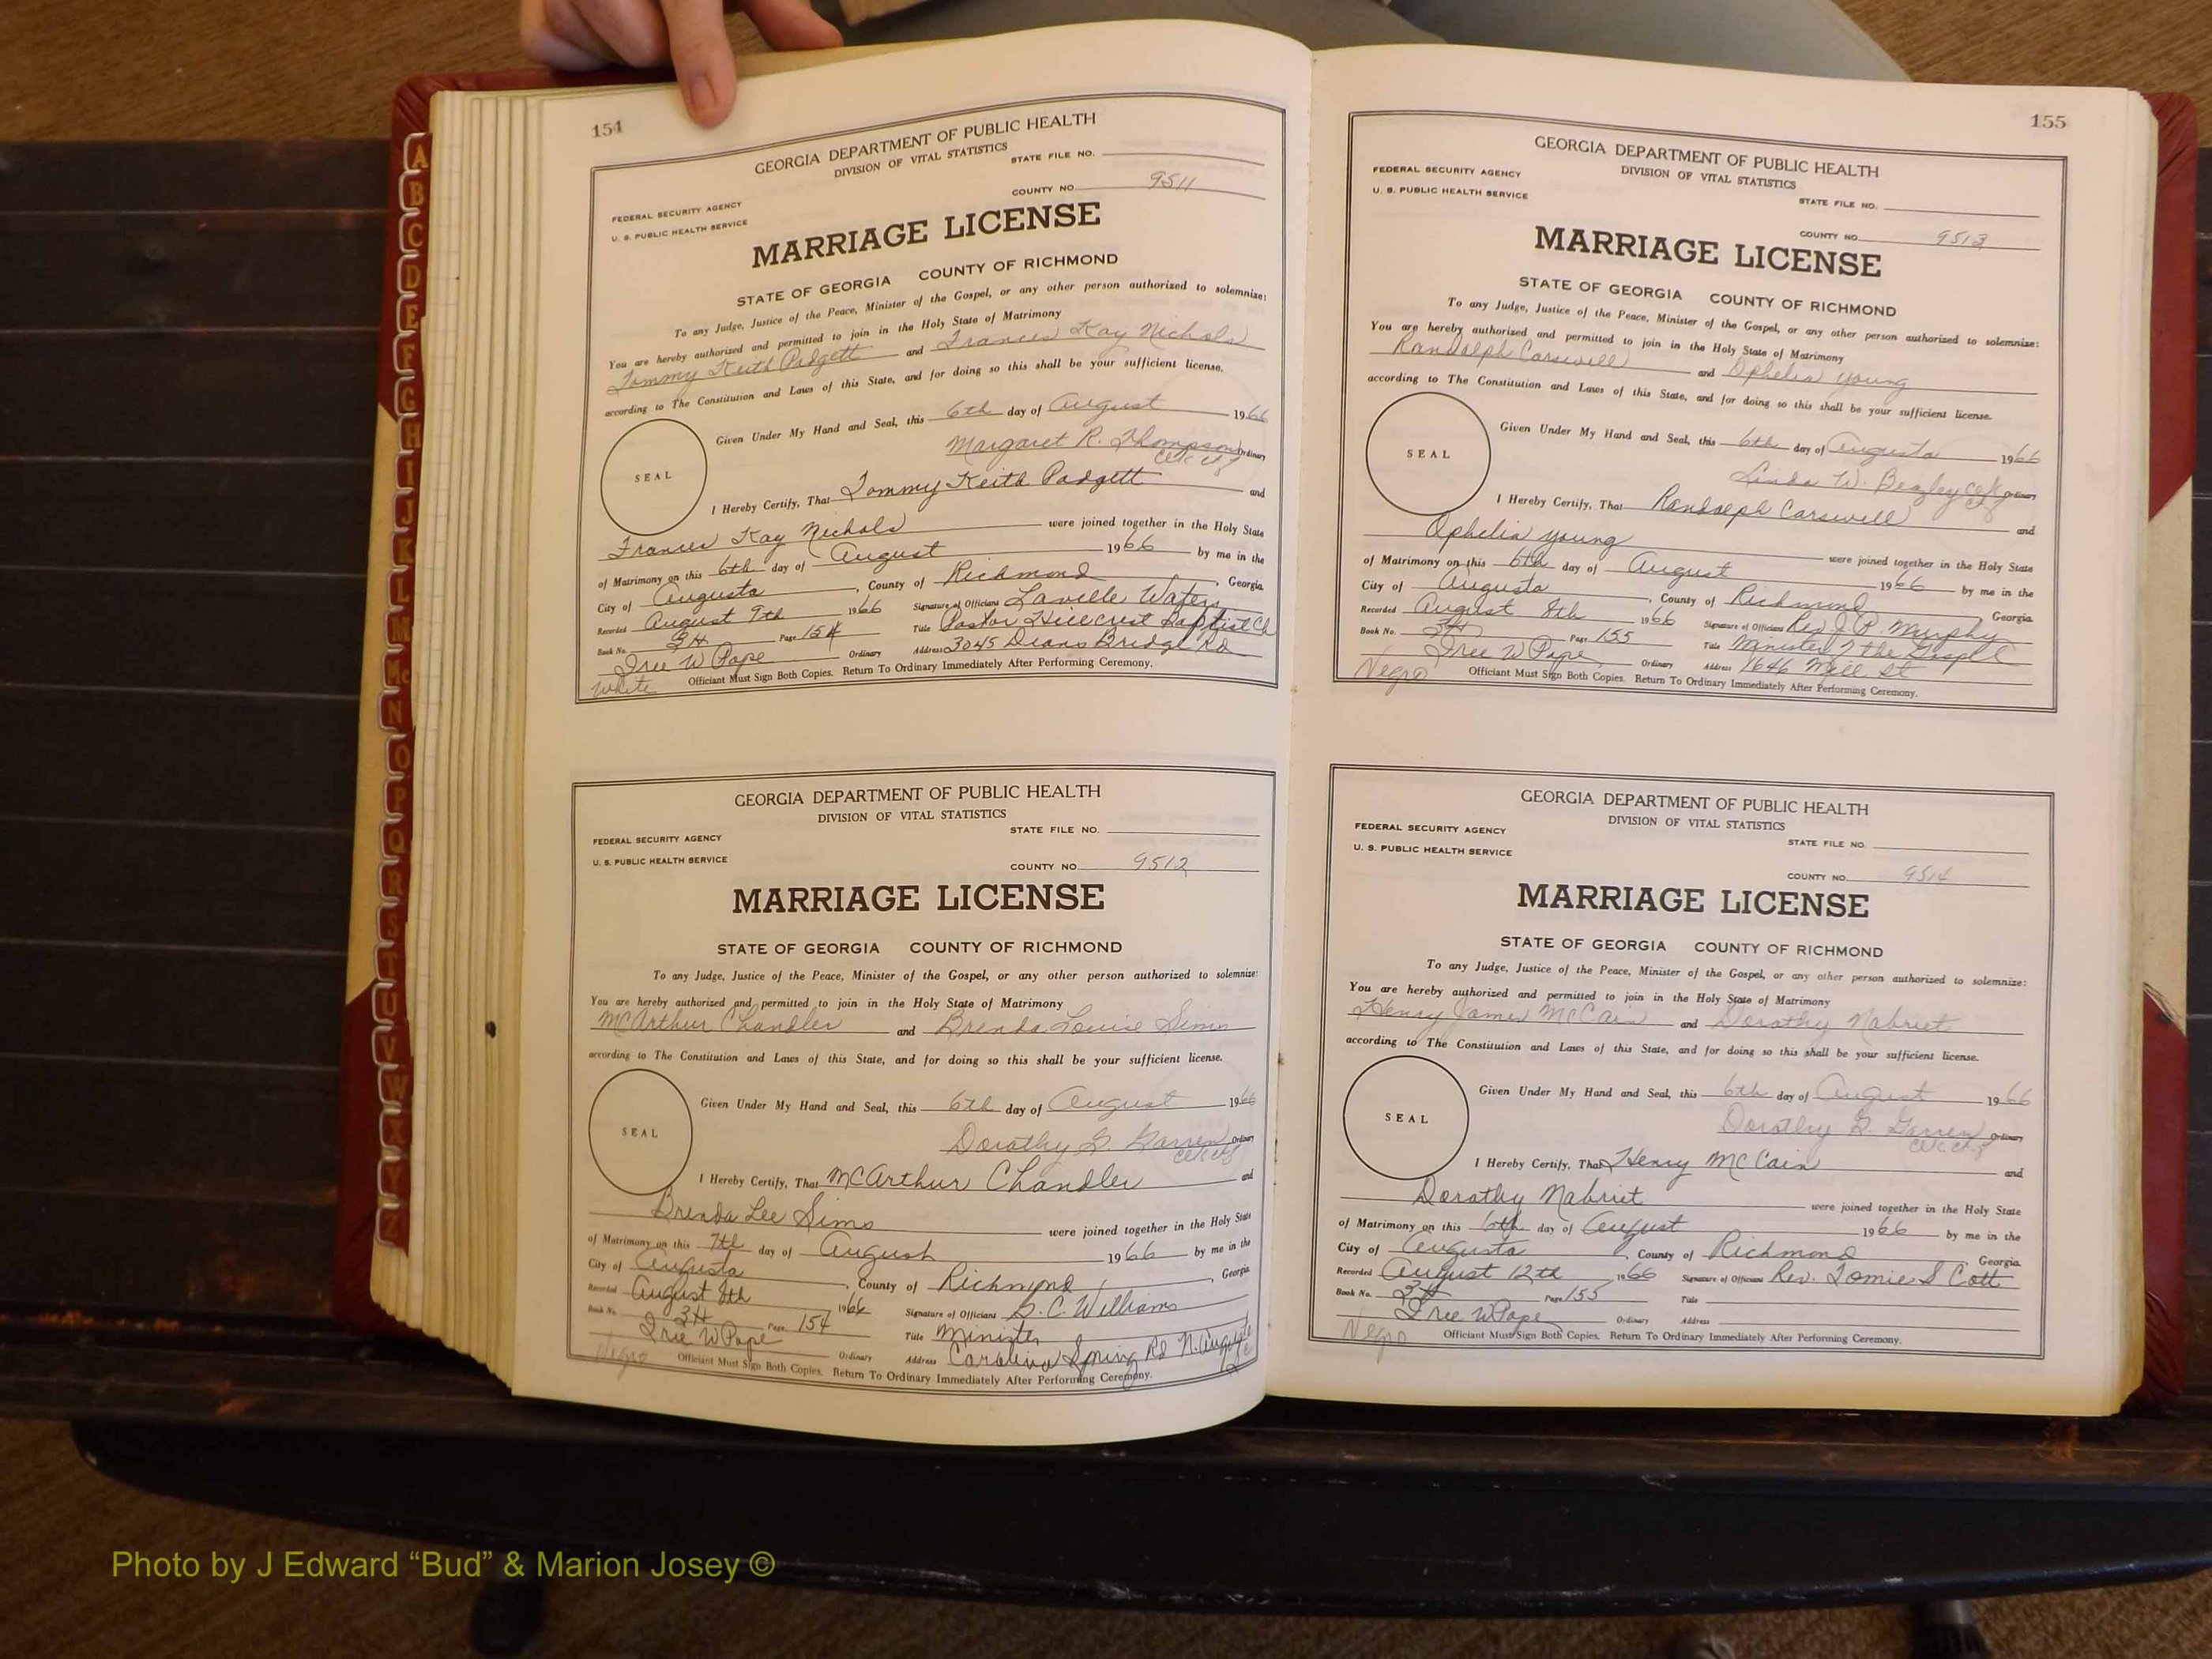 154
GEORGIA DEPARTMENT OF PUBLIC HEALTH
DIVISION OF VITAL STATISTICS
STATE FILE NO.
COUNTY NO. 9511
FEDERAL SECURITY AGENCY
U. S. PUBLIC HEALTH SERVICE
MARRIAGE LICENSE
STATE OF GEORGIA COUNTY OF RICHMOND
To any Judge, Justice of the Peace, Minister of the Gospel, or any other person authorized to solemnize:
You are hereby authorized and permitted to join in the Holy State of Matrimony
Tommy Keith Padgett and Frances Kay Nichols
according to The Constitution and Laws of this State, and for doing so this shall be your sufficient license.
Given Under My Hand and Seal, this 6th day of August 1966
Margaret R. Thompson Ordinary
SEAL
I Hereby Certify, That Tommy Keith Padgett and
Frances Kay Nichols were joined together in the Holy State
of Matrimony on this 6th day of August 1966 by me in the
City of Augusta, County of Richmond, Georgia
Recorded August 9th 1966 Signature of Officiant Lavelle Waters
Book No. 3H Page 154 Title Pastor Hillcrest Baptist Ch
Iree W Pope Ordinary Address 3045 Deans Bridge Rd
White Officiant Must Sign Both Copies. Return To Ordinary Immediately After Performing Ceremony.
GEORGIA DEPARTMENT OF PUBLIC HEALTH
DIVISION OF VITAL STATISTICS
FEDERAL SECURITY AGENCY
STATE FILE NO.
U. S. PUBLIC HEALTH SERVICE
COUNTY NO. 9512
MARRIAGE LICENSE
STATE OF GEORGIA COUNTY OF RICHMOND
To any Judge, Justice of the Peace, Minister of the Gospel, or any other person authorized to solemnize:
You are hereby authorized and permitted to join in the Holy State of Matrimony
McArthur Chandler and Brenda Louise Sims
according to The Constitution and Laws of this State, and for doing so this shall be your sufficient license.
Given Under My Hand and Seal, this 6th day of August 1966
Dorothy G. Garren Ordinary
SEAL
I Hereby Certify, That McArthur Chandler and
Brenda Lee Sims were joined together in the Holy State
of Matrimony on this 7th day of August 1966 by me in the
City of Augusta, County of Richmond, Georgia
Recorded August 8th 1966 Signature of Officiant S. C. Williams
Book No. 3H Page 154 Title Minister
Iree W Pope Ordinary Address Carolina Spring Rd N. Augusta
Negro Officiant Must Sign Both Copies. Return To Ordinary Immediately After Performing Ceremony.
155
GEORGIA DEPARTMENT OF PUBLIC HEALTH
DIVISION OF VITAL STATISTICS
FEDERAL SECURITY AGENCY
U. S. PUBLIC HEALTH SERVICE
STATE FILE NO.
COUNTY NO. 9513
MARRIAGE LICENSE
STATE OF GEORGIA COUNTY OF RICHMOND
To any Judge, Justice of the Peace, Minister of the Gospel, or any other person authorized to solemnize:
You are hereby authorized and permitted to join in the Holy State of Matrimony
Randolph Carswell and Ophelia Young
according to The Constitution and Laws of this State, and for doing so this shall be your sufficient license.
Given Under My Hand and Seal, this 6th day of Augusta 1966
Linda W. Beazley Ordinary
SEAL
I Hereby Certify, That Randolph Carswell and
Ophelia Young were joined together in the Holy State
of Matrimony on this 6th day of August 1966 by me in the
City of Augusta, County of Richmond Georgia
Recorded August 8th 1966 Signature of Officiant Rev J. P. Murphy
Book No. 3H Page 155 Title Minister of the Gospel
Iree W Pope Ordinary Address 1646 Mill St
Negro Officiant Must Sign Both Copies. Return To Ordinary Immediately After Performing Ceremony.
GEORGIA DEPARTMENT OF PUBLIC HEALTH
DIVISION OF VITAL STATISTICS
FEDERAL SECURITY AGENCY
STATE FILE NO.
U. S. PUBLIC HEALTH SERVICE
COUNTY NO. 9514
MARRIAGE LICENSE
STATE OF GEORGIA COUNTY OF RICHMOND
To any Judge, Justice of the Peace, Minister of the Gospel, or any other person authorized to solemnize:
You are hereby authorized and permitted to join in the Holy State of Matrimony
Henry James McCain and Dorothy Nabriet
according to The Constitution and Laws of this State, and for doing so this shall be your sufficient license.
Given Under My Hand and Seal, this 6th day of August 1966
Dorothy G. Garren Ordinary
SEAL
I Hereby Certify, That Henry McCain and
Dorothy Nabriet were joined together in the Holy State
of Matrimony on this day of August 1966 by me in the
City of Augusta, County of Richmond Georgia
Recorded August 12th 1966 Signature of Officiant Rev. Tomie S Cott
Book No. 3H Page 155 Title
Iree W Pope Ordinary Address
Negro Officiant Must Sign Both Copies. Return To Ordinary Immediately After Performing Ceremony.
A
B
C
D
E
F
G
H
I
J
K
L
M
Mc
N
O
P
Q
R
S
T
U
V
W
X
Y
Z
Photo by J Edward “Bud” & Marion Josey ©